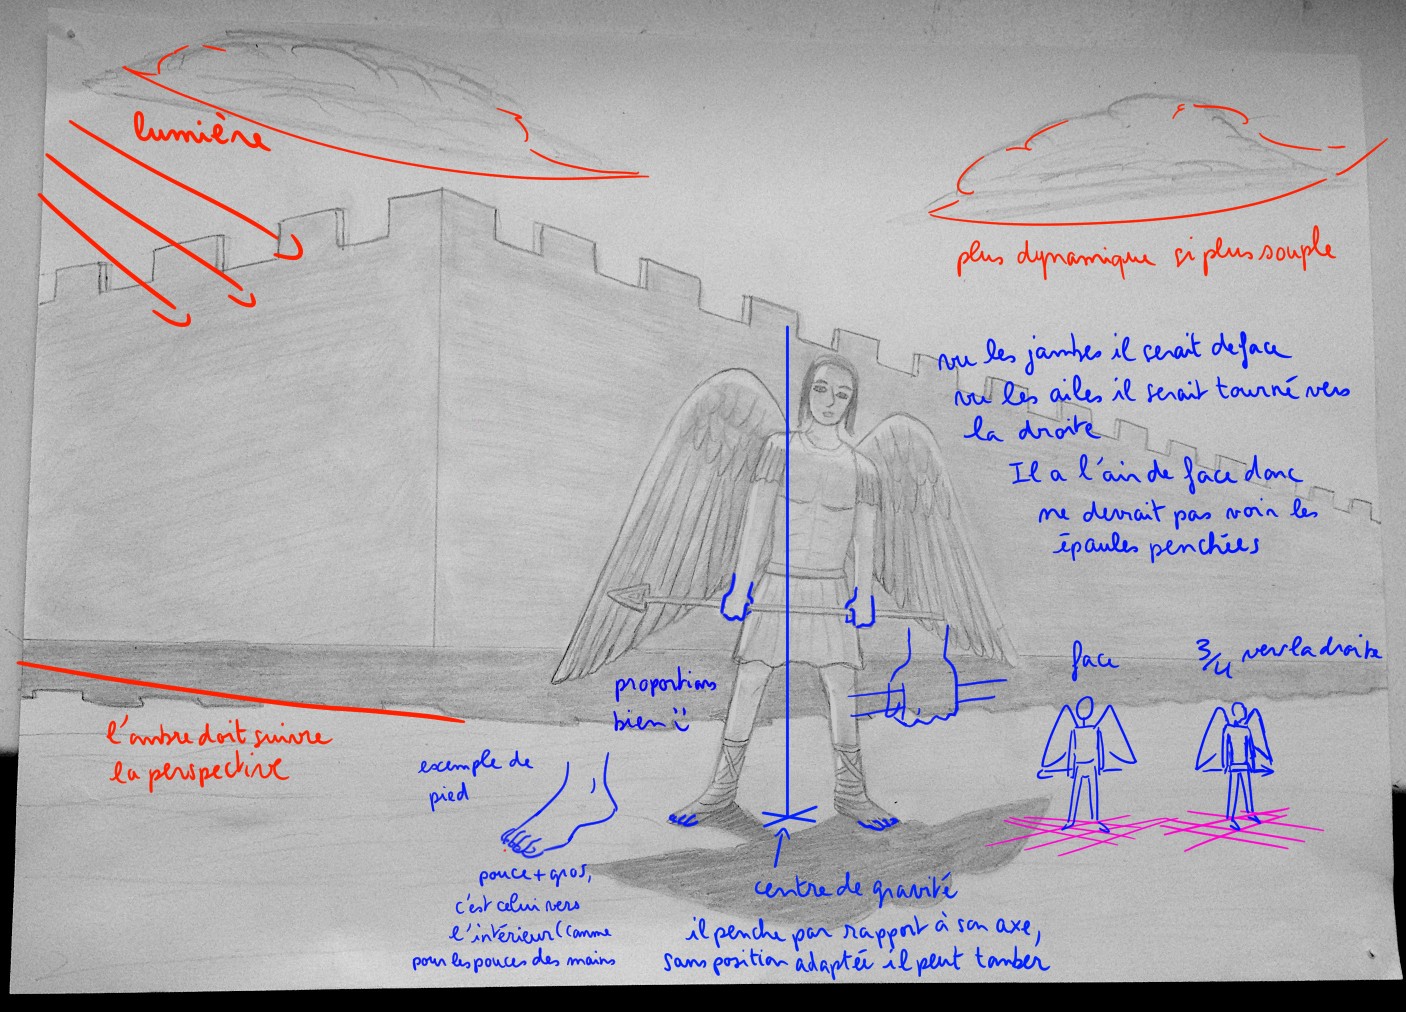 lumière
plus dynamique si plus souple
vu les jambes il serait de face
vu les ailes il serait tourné vers
la droite
Il a l'air de face donc
ne devrait pas voir les
épaules penchées
face
3/4 vers la droite
proportions
bien :)
l'ombre doit suivre
la perspective
exemple de
pied
pouce + gros,
c'est celui vers
l'intérieur (comme
pour les pouces des mains
centre de gravité
il penche par rapport à son axe,
sans position adaptée il peut tomber